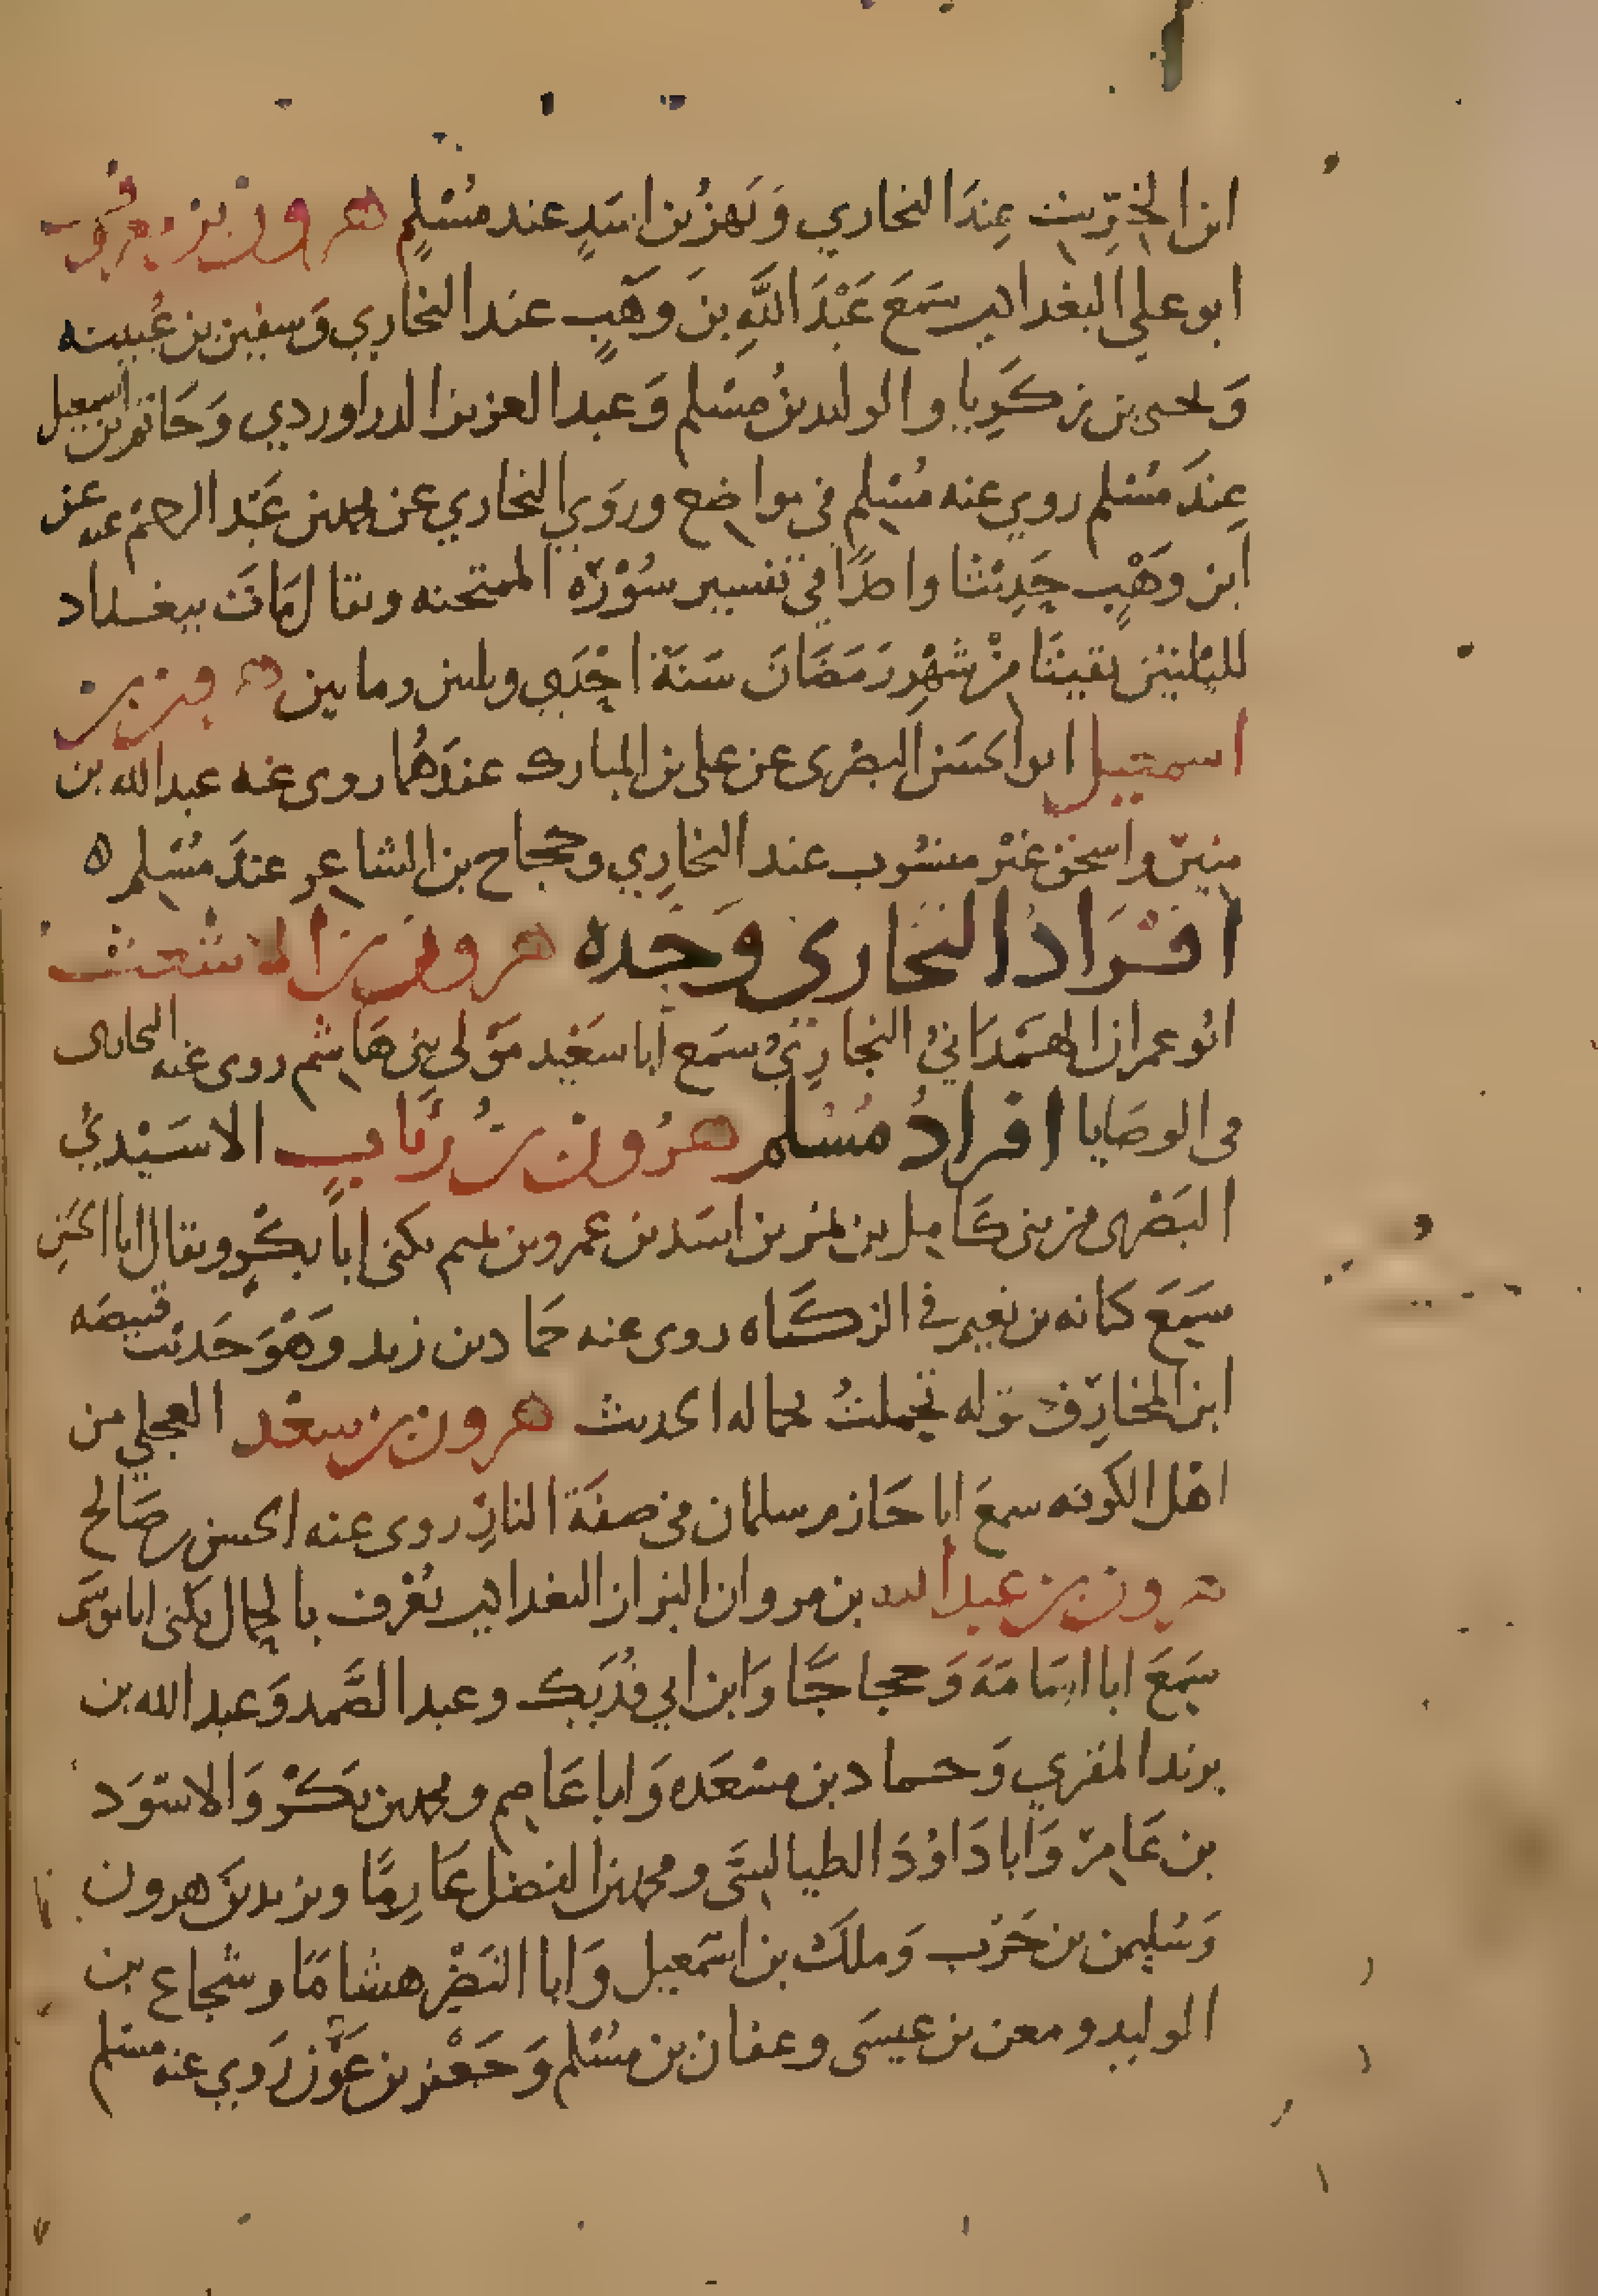 ابن الخِرِّيت عِندَ البخاري وَبَهزُ بن اسَدٍ عند مُسْلِمٍ هرون بن معروف
ابو علي البغدادي سَمعَ عَبْدَ اللَّهِ بنَ وَهَبٍ عند البخاري وَسفين بن عُيينه
وَيحيى بن زكَرِيا والوليد بنُ مسْلم وَعبد العزيز الدراوردي وَحَاتم بن اسمعيل
عِندَ مسْلم روي عنه مُسْلِم في مواضح وروَي البخاري عن محمد بن عَبْد الرحمن عنه عن
ابن وَهْبٍ حَدِيثا واحدًا في تفسير سُوْرَه الممتحنه ويقال مَات ببغداد
لليْلتيْن بقيتَا مِنْ شهْرِ رَمَضَانَ سَنَة اِحْدَي وثلثين ومايتين هرون بن
اسمعيل ابو الحسَن البصْرى عن علي بن المبارك عندَهُمَا روى عنه عبد الله بن
منير واسحق غيْر منسُوب عند البخارِي وحجاج بن الشاعر عندَ مسْلم ه
افْرَادُ البخاري وَحْده هرون بن الاشعث
ابُو عمران الهمَدَانيُ البخارِيُّ سمَع ابا سَعْيد مَوْلى بني هَاشم روى عنه البخاري
في الوصَايا افرادُ مسْلم هرُون بنُ رئاب الاسَيْديُّ
البَصْرى من بني كَاهِل بن نمير بن اسَد بن عمرو بن تميم يكنى اباَ بكْرٍ ويقال ابا الحسَنِ
سَمَعَ كنانه بن نعيم في الزكَاه روى عنه حمَاد بن زيد وَهْوَ حَديث قبيصَه
ابن المخارِق قوله تحملتُ بحماله الحديث هرون بن سعْد العجلي من
اهْل الكوفه سمعَ ابا حَازم سلمان في صفَة النارِ روى عنه الحسن بن صَالح
هرون بن عبد الله بن مروان البزاز البغدادي يُعْرف بالحمال يكنى ابا موسَى
سَمعَ ابا اسَامَةَ وَحجاجًا وَابن ابي فُدَيك وعبد الصَّمد وَعبد الله بن
يزيد المقري وَحماد بن مسْعَده وَابا عَاصم ومحمد بن بَكَرْ وَالاسْوَد
بن عَامِرْ وَابا دَاوُدَ الطيالسَّى ومحمد بن الفضل عَارِمًا ويزيد بنَ هرون
وَسُليمن بن حَرْب وَملكَ بن اسْمعيل وَابا النَضْر هشامًا وشجاع بن
الوليد ومعن بن عيسَى وعفان بن مسْلم وَجَعْفر بن عَوْن رَوي عنه مسْلم